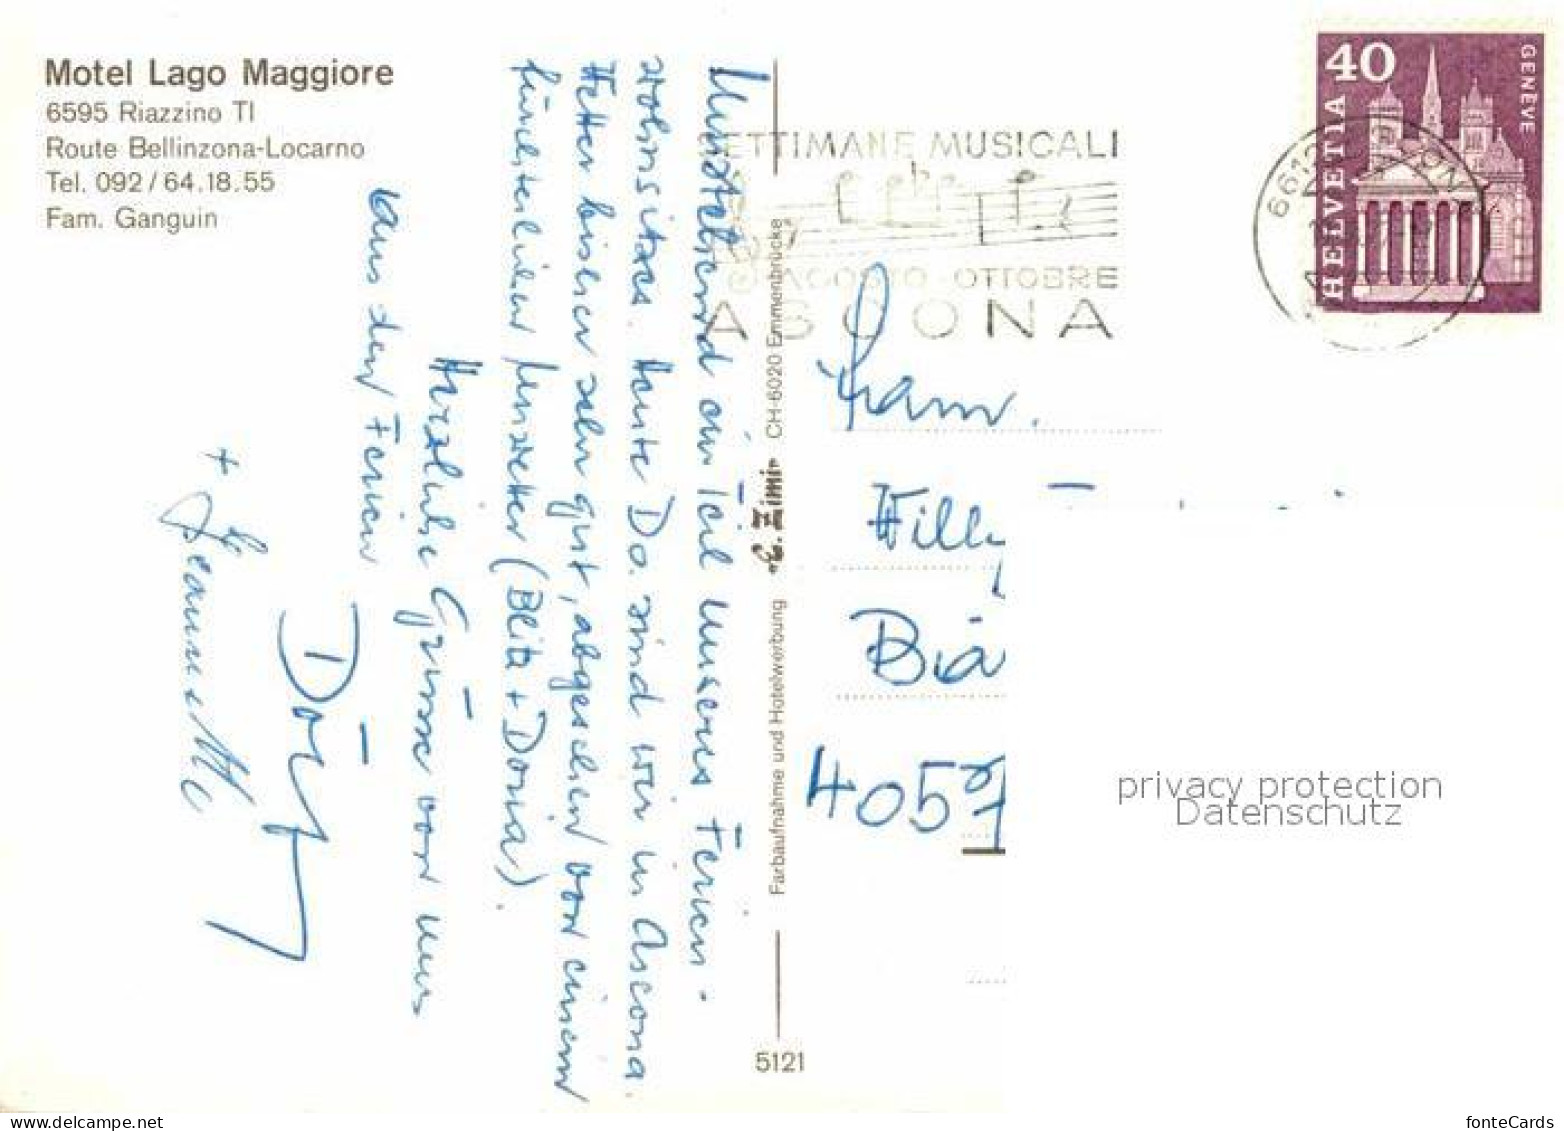 Motel Lago Maggiore
6595 Riazzino TI
Route Bellinzona-Locarno
Tel. 092/64.18.55
Fam. Ganguin
Umstehend ein Teil unseres Ferien-
wohnsitzes. Heute Do. sind wir in Ascona.
Wetter bisher sehr gut, abgesehen von einem
fürchterlichen Unwetter (Blitz + Donner).
Herzliche Grüsse von uns
aus den Ferien
+ Jeannette
5121
Farbaufnahme und Hotelwerbung "E. Zimi" CH-6020 Emmenbrücke
SETTIMANE MUSICALI
AGOSTO - OTTOBRE
ASCONA
40
HELVETIA
GENÈVE
6612
Fam.
Willy
4057
privacy protection
Datenschutz
www.delcampe.net
fonteCards